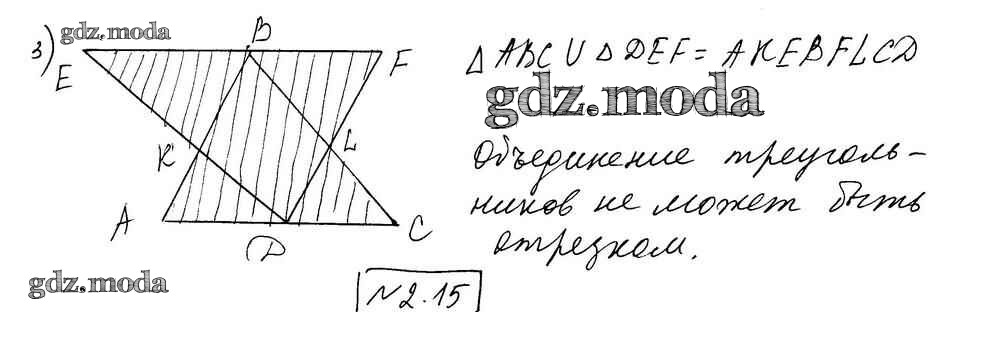 3)
gdz.moda
B
E
F
△ABC ∪ △DEF = AKEBFLCD
gdz.moda
K
L
Объединение треуголь-
ников не может быть
отрезком.
A
D
C
gdz.moda
№2.15